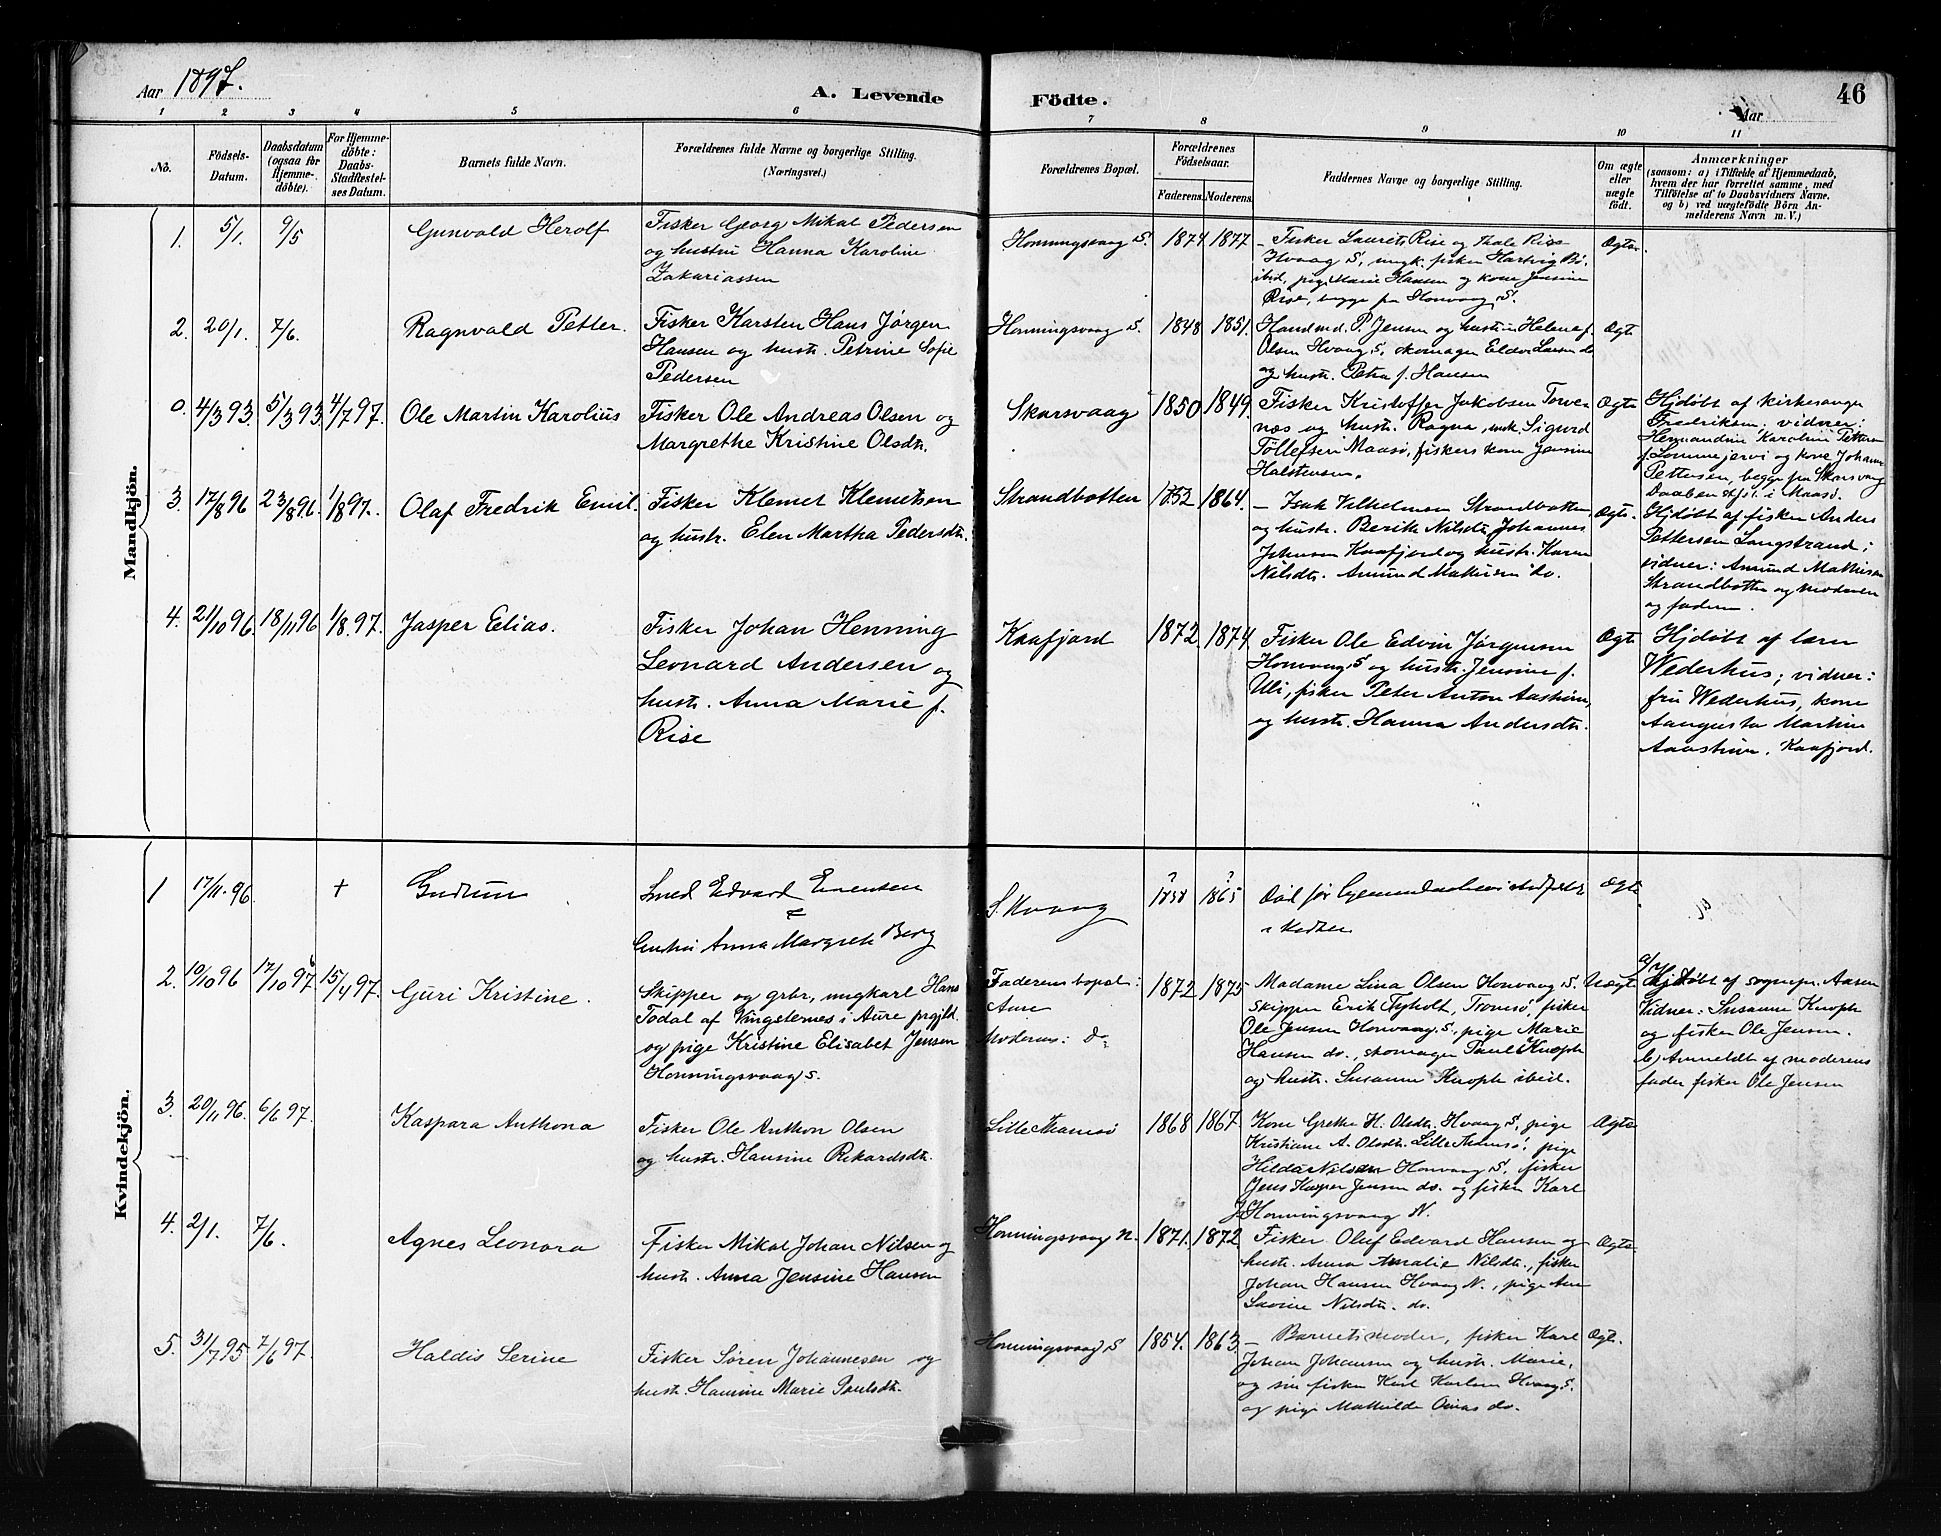 Aar 1897.
A. Levende Födte.
Aar
46
1 2 3 4 5 6 7 8 9 10 11
No.
Födsels-Datum.
Daabsdatum (ogsaa for Hjemme-døbte).
For Hjemme-døbte: Daabs-Stadfæstel-ses Datum.
Barnets fulde Navn.
Forældrenes fulde Navne og borgerlige Stilling. (Næringsvei.)
Forældrenes Bopæl.
Forældrenes Födselsaar.
Faderens. Moderens.
Faddernes Navne og borgerlige Stilling.
Om ægte eller uægte født.
Anmærkninger
(saasom: a) i Tilfælde af Hjemmedaab,
hvem der har forrettet samme, med
Tilföielse af to Daabsvidners Navne.
og b) ved uægtefödte Börn An-
melderens Navn m. V.)
Mandkjön.
1. 5/1. 9/5 Gunvald Herolf
Fisker Georg Mikal Pedersen
og hustru Hanna Karoline
Zakariassen
Honningsvaag S. 1874 1877
– Fisker Laurits Rise og Rise
Hvaag S, ungk. fisker Hartvig Bö,
ibid, pige Marie Hansen og kone Jensine
Rise, begge fra Honvaag S.
Ægte
2. 20/1. 7/6. Ragnvald Petter.
Fisker Karsten Hans Jørgen
Hansen og hustr. Petrine Sofie
Pedersen
Honningsvaag S. 1848 1851.
Handmd. P. Jensen og hustru Helene f.
Olsen Hvaag S, skomager Larsen do
og hustr. Petra f. Hansen
Ægt
0. 4/3 93. 5/3 93. 4/7 97. Ole Martin Karolius
Fisker Ole Andreas Olsen og
Margrethe Kristine Olsdtr.
Skarsvaag 1850 1849.
Fisker Kristoffer Jakobsen Torve
næs og hustr. Ragna, Sigurd
Töllefsen Maasö, fiskers kone Jensine
Halstensen.
Ægte
Hjdøbt af kirkesanger
Fredriksen, vidner:
Hermandine Karoline Petters.
f. Lommejervi og kone Johanna
Pettersen, begge fra Skarsvaag
Daaben stf. i Maasö.
3. 17/8 96 23/8 96. 1/8 97. Olaf Fredrik Emil.
Fisker Klemet Klemetsen
og hustr. Elen Martha Pedersdtr.
Strandbotten 1852 1864.
– Isak Vilhelmsen Strandbotten
og hustr. Berith Nilsdtr, Johannes
Johnsen Kaafjord og hustr. Karen
Nilsdtr. Amund Mathisen do.
Ægte.
Hjdøbt af fisker Anders
Pettersen Langstrand;
vidner: Amund Mathisen
Strandbotten og moderen
og faderen.
4. 21/10 96. 18/11 96 1/8. 97. Jasper Elias.
Fisker Johan Henning
Leonard Andersen og
hustr. Anna Marie f.
Rise
Kaafjord 1872. 1874.
Fisker Ole Edvin Jørgensen
Honvaag S og hustr. Jensine f.
Uli, fisker Peter Anton Aastrøm,
og hustr. Hanna Andersdtr.
Ægt.
Hjdøbt af lærer
Wederhus; vidner:
fru Wederhus, kone
Aaugusta Martine
Aaastrøm, Kaafjord.
Kvindekjön.
1 17/11.96 + Gudrun
Smed Edvard Evensen
Hustru Anna Margrete Berg
S. Hvaag ? 1858 ? 1865
Död før Hjemmedaabens stadfestelse
i kirken
Ægt
2. 19/10 96 17/10 97. 6 15/4 97. Guri Kristine.
Skipper og grbr, ungkarl Hans
Todal af Vingsternes i Aure prgjld
og pige Kristine Elisabet Jensen
Honningsvaag S.
Faderens bopæl:
Aure
Moderens: do
1872 1875
Madame Lina Olsen Honvaag S.
skipper Erik Tyholt, Tromsö, fisker
Ole Jensen Honvaag S., pige Marie
Hansen do., skomager Paul Knoph
og hustr. Susanne Knoph ibid.
Uægt
a) Hjdøbt af sognepr. Aasen
Vidner: Susanne Knoph
og fisker Ole Jensen.
b) Anmeldt af moderens
fader fisker Ole Jensen
3. 20/11 96. 6/6 97. Kaspara Anthona
Fisker Ole Anthon Olsen
og hustr. Hansine Rikardsdtr.
Lille 1868 1867.
Kone Grethe H. Olsdtr. Hvaag S, pige
Kristiane A. Olsdtr. Lille pige
Hilda Nilsen Honvaag S, fisker
Jens Kasper Jensen do. og fisker Karl
J. Honningsvaag N.
Ægte
4. 2/1. 7/6. Agnes Leonora
Fisker Mikal Johan Nilsen og
hustr. Anna Jensine Hansen
Honningsvaag N. 1871. 1872
Fisker Oluf Edvard Hansen og
hustr. Anna Amalie Nilsdtr., fisker
Johan Hansen Hvaag N., pige Ane
Savine Nilsdtr. do.
Ægte
5. 31/7 95 7/6 97. Haldis Serine
Fisker Søren Johannesen og
hustr. Hansine Marie Paulsdtr.
Honningsvaag S 1854. 1863.
– Barnets moder, fisker Karl
Johan Johansen og hustr. Marie,
og sin fisker Karl Karlsen Hvaag S.
og pige Mathilde do.
Ægt.